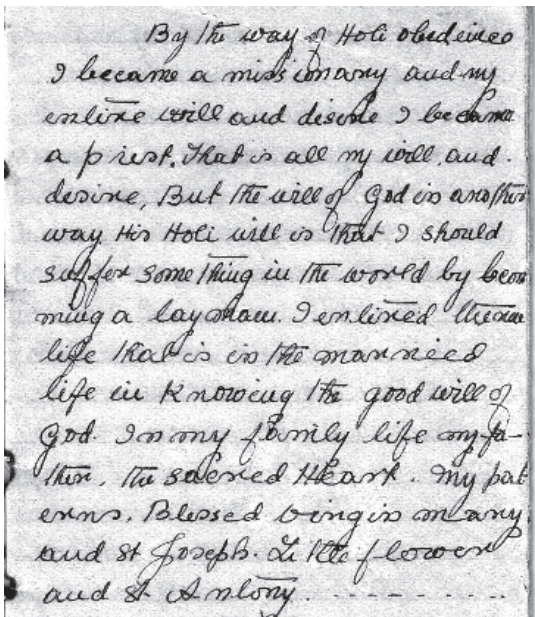 By the way of Holi obedience
I became a missionary and my
entire will and disire I became
a priest. That is all my will, and
desire, But the will of God in another
way His Holi will is that I should
suffer some thing in the world by becom
ming a layman. I entired the new
life that is in the married
life in Knowing the good will of
God. In my family life my fa-
ther, the sacred Heart. My pat
erns, Blessed Virgin Mary
and St Joseph. Little flower
and St Antony. - - - - - - - - -